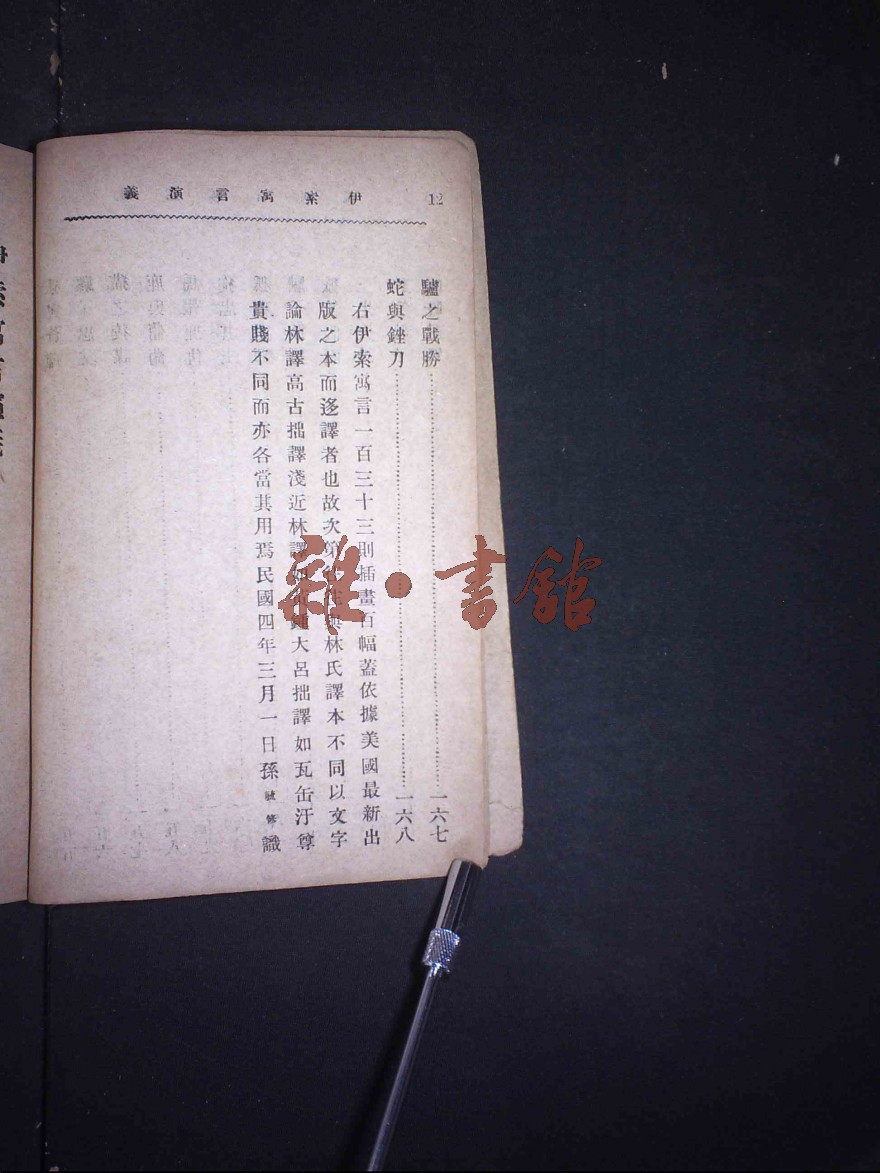 伊索寓言演義
12
驢之戰勝……一六七
蛇與銼刀……一六八
右伊索寓言一百三十三則插畫百幅蓋依據美國最新出
版之本而迻譯者也故次第 與林氏譯本不同以文字
論林譯高古拙譯淺近林譯如黃鍾大呂拙譯如瓦缶汙尊
貴賤不同而亦各當其用焉民國四年三月一日孫毓修識
雜·書館